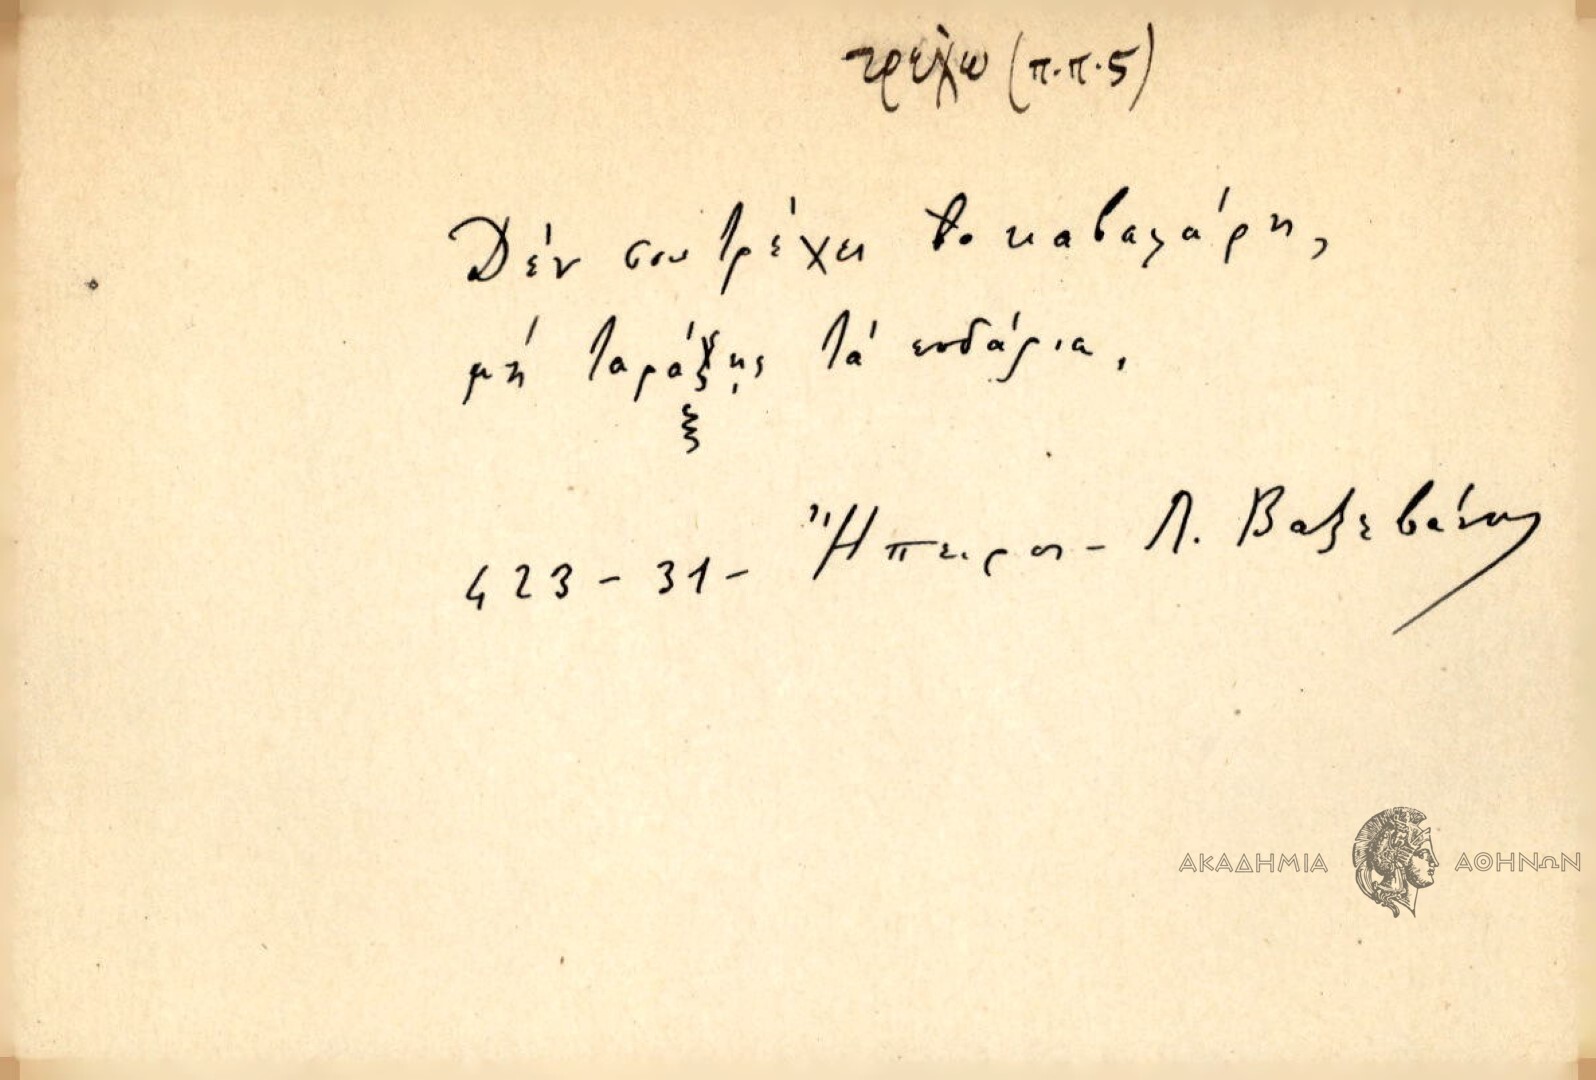 τρέχω (π.π.5)
Δέν σου τρέχει το καβαλάρη,
μή ταράξης τά ποδάρια.
ξ
423 - 31 - Ἤπειρος - Λ. Βαξεβάνης
ΑΚΑΔΗΜΙΑ ΑΘΗΝΩΝ